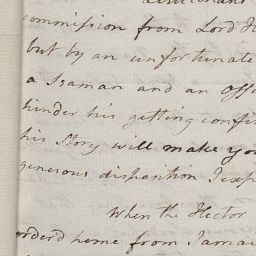 Lieutenant
commission from Lord H
but by an unfortunate
a Seaman and an Offi
hinder his getting confir
his Story will make you
generous disposition I esp
When the Hector
order'd home from Jamai